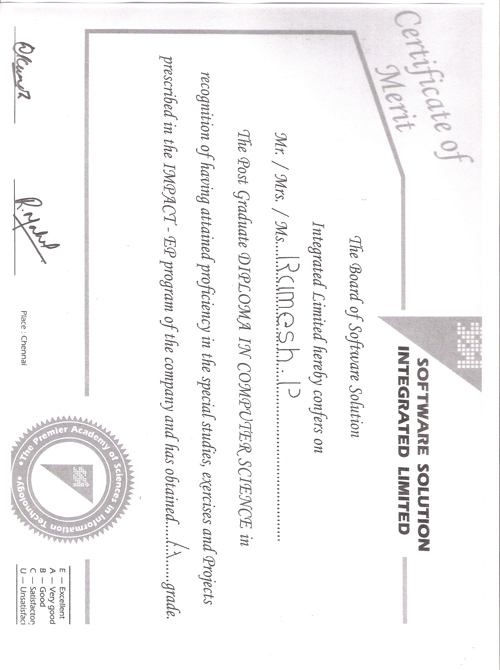 Certificate of
Merit
SOFTWARE SOLUTION
INTEGRATED LIMITED
The Board of Software Solution
Integrated Limited hereby confers on
Mr. / Mrs. / Ms. Ramesh. P
The Post Graduate DIPLOMA IN COMPUTER SCIENCE in
recognition of having attained proficiency in the special studies, exercises and Projects
prescribed in the IMPACT - EP program of the company and has obtained..............grade.
Place : Chennai
The Premier Academy of Sciences in Information Technology
E — Excellent
A — Very good
B — Good
C — Satisfactor
U — Unsatisfact